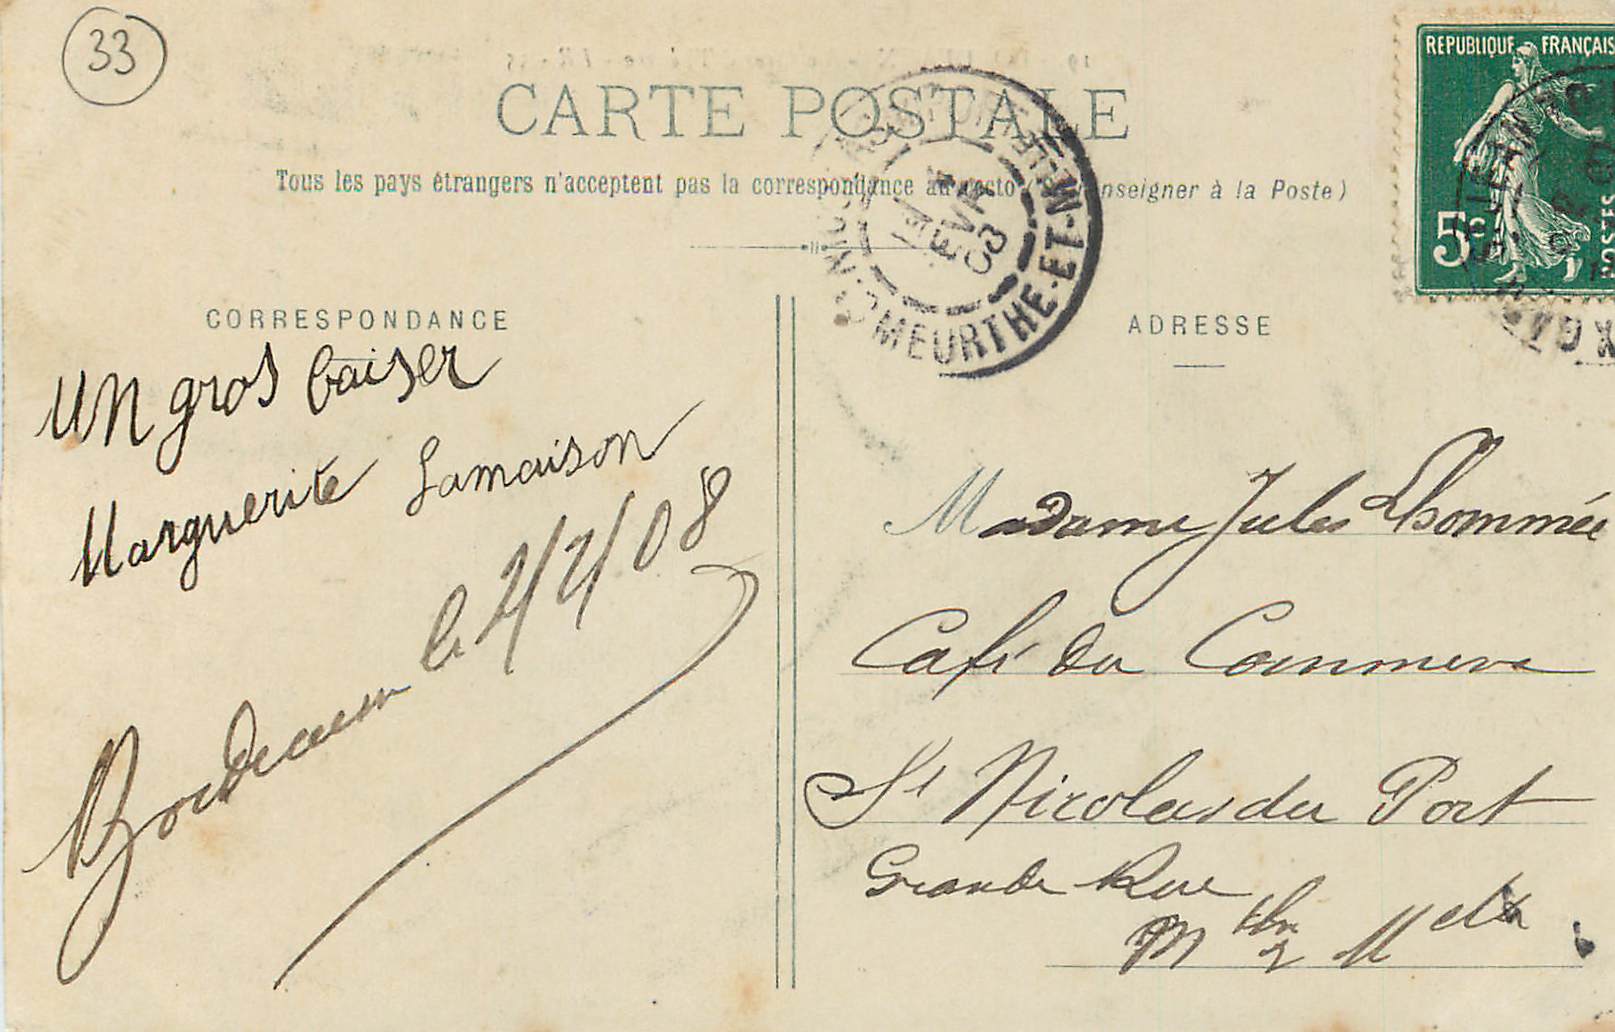 33
CARTE POSTALE
Tous les pays étrangers n'acceptent pas la correspondance au recto ( nseigner à la Poste)
MEURTHE-ET-M
REPUBLIQUE FRANÇAIS
5c
POSTES
CORRESPONDANCE
un gros baiser
Marguerite Lamaison
Bordeaux le 2/2/08
ADRESSE
Madame Jules Lhommée
Café du Commerce
St Nicolas du Port
Grande Rue
Mthe Melle